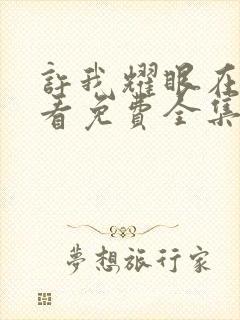 許我耀眼在
看免費全集
夢想旅行家